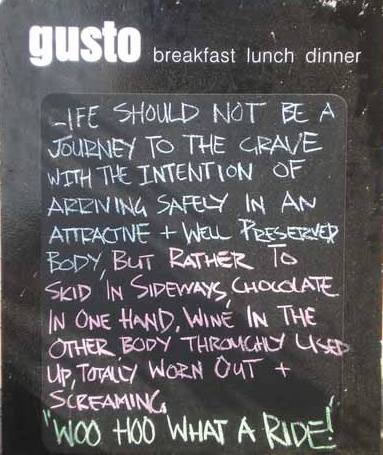 gusto breakfast lunch dinner
LIFE SHOULD NOT BE A
JOURNEY TO THE GRAVE
WITH THE INTENTION OF
ARRIVING SAFELY IN AN
ATTRACTIVE + WELL PRESERVED
BODY, BUT RATHER TO
SKID IN SIDEWAYS, CHOCOLATE
IN ONE HAND, WINE IN THE
OTHER BODY THROUGHLY USED
UP, TOTALLY WORN OUT +
SCREAMING,
"WOO HOO WHAT A RIDE!"